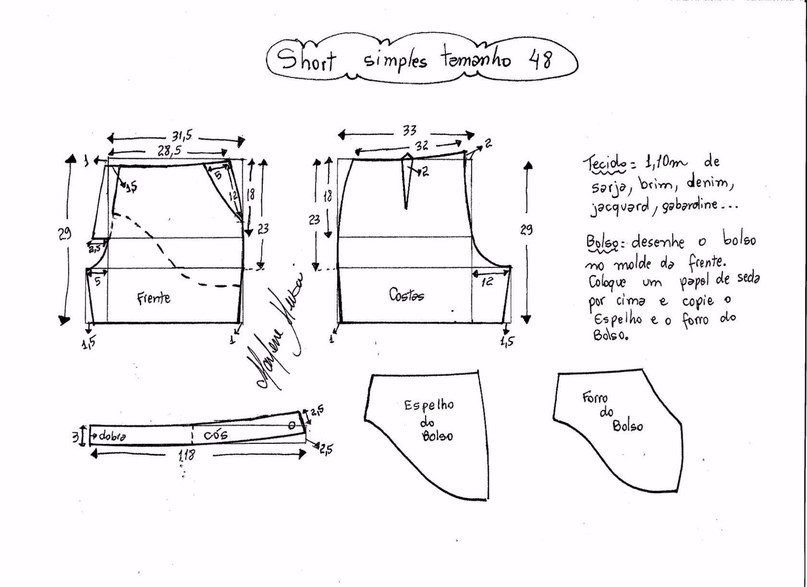 Short simples tamanho 48
31,5
28,5
1
1,5
5
12
18
23
29
2,5
5
Frente
1,5
1
33
32
2
2
18
23
29
12
Costas
1
1,5
Tecido: 1,10m de
sarja, brim, denim,
jacquard, gabardine...
Bolso: desenhe o bolso
no molde da frente.
Coloque um papel de seda
por cima e copie o
Espelho e o forro do
Bolso.
3
dobra
cós
2,5
2,5
118
Espelho
do
Bolso
Forro
do
Bolso